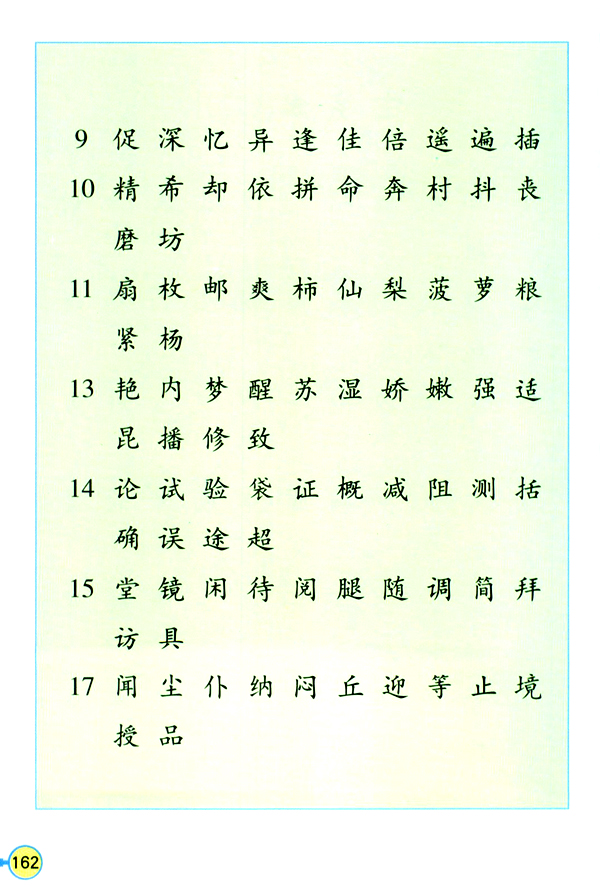 9 促 深 忆 异 逢 佳 倍 遥 遍 插
10 精 希 却 依 拼 命 奔 村 抖 丧
磨 坊
11 扇 枚 邮 爽 柿 仙 梨 菠 萝 粮
紧 杨
13 艳 内 梦 醒 苏 湿 娇 嫩 强 适
昆 播 修 致
14 论 试 验 袋 证 概 减 阻 测 括
确 误 途 超
15 堂 镜 闲 待 阅 腿 随 调 简 拜
访 具
17 闻 尘 仆 纳 闷 丘 迎 等 止 境
授 品
162